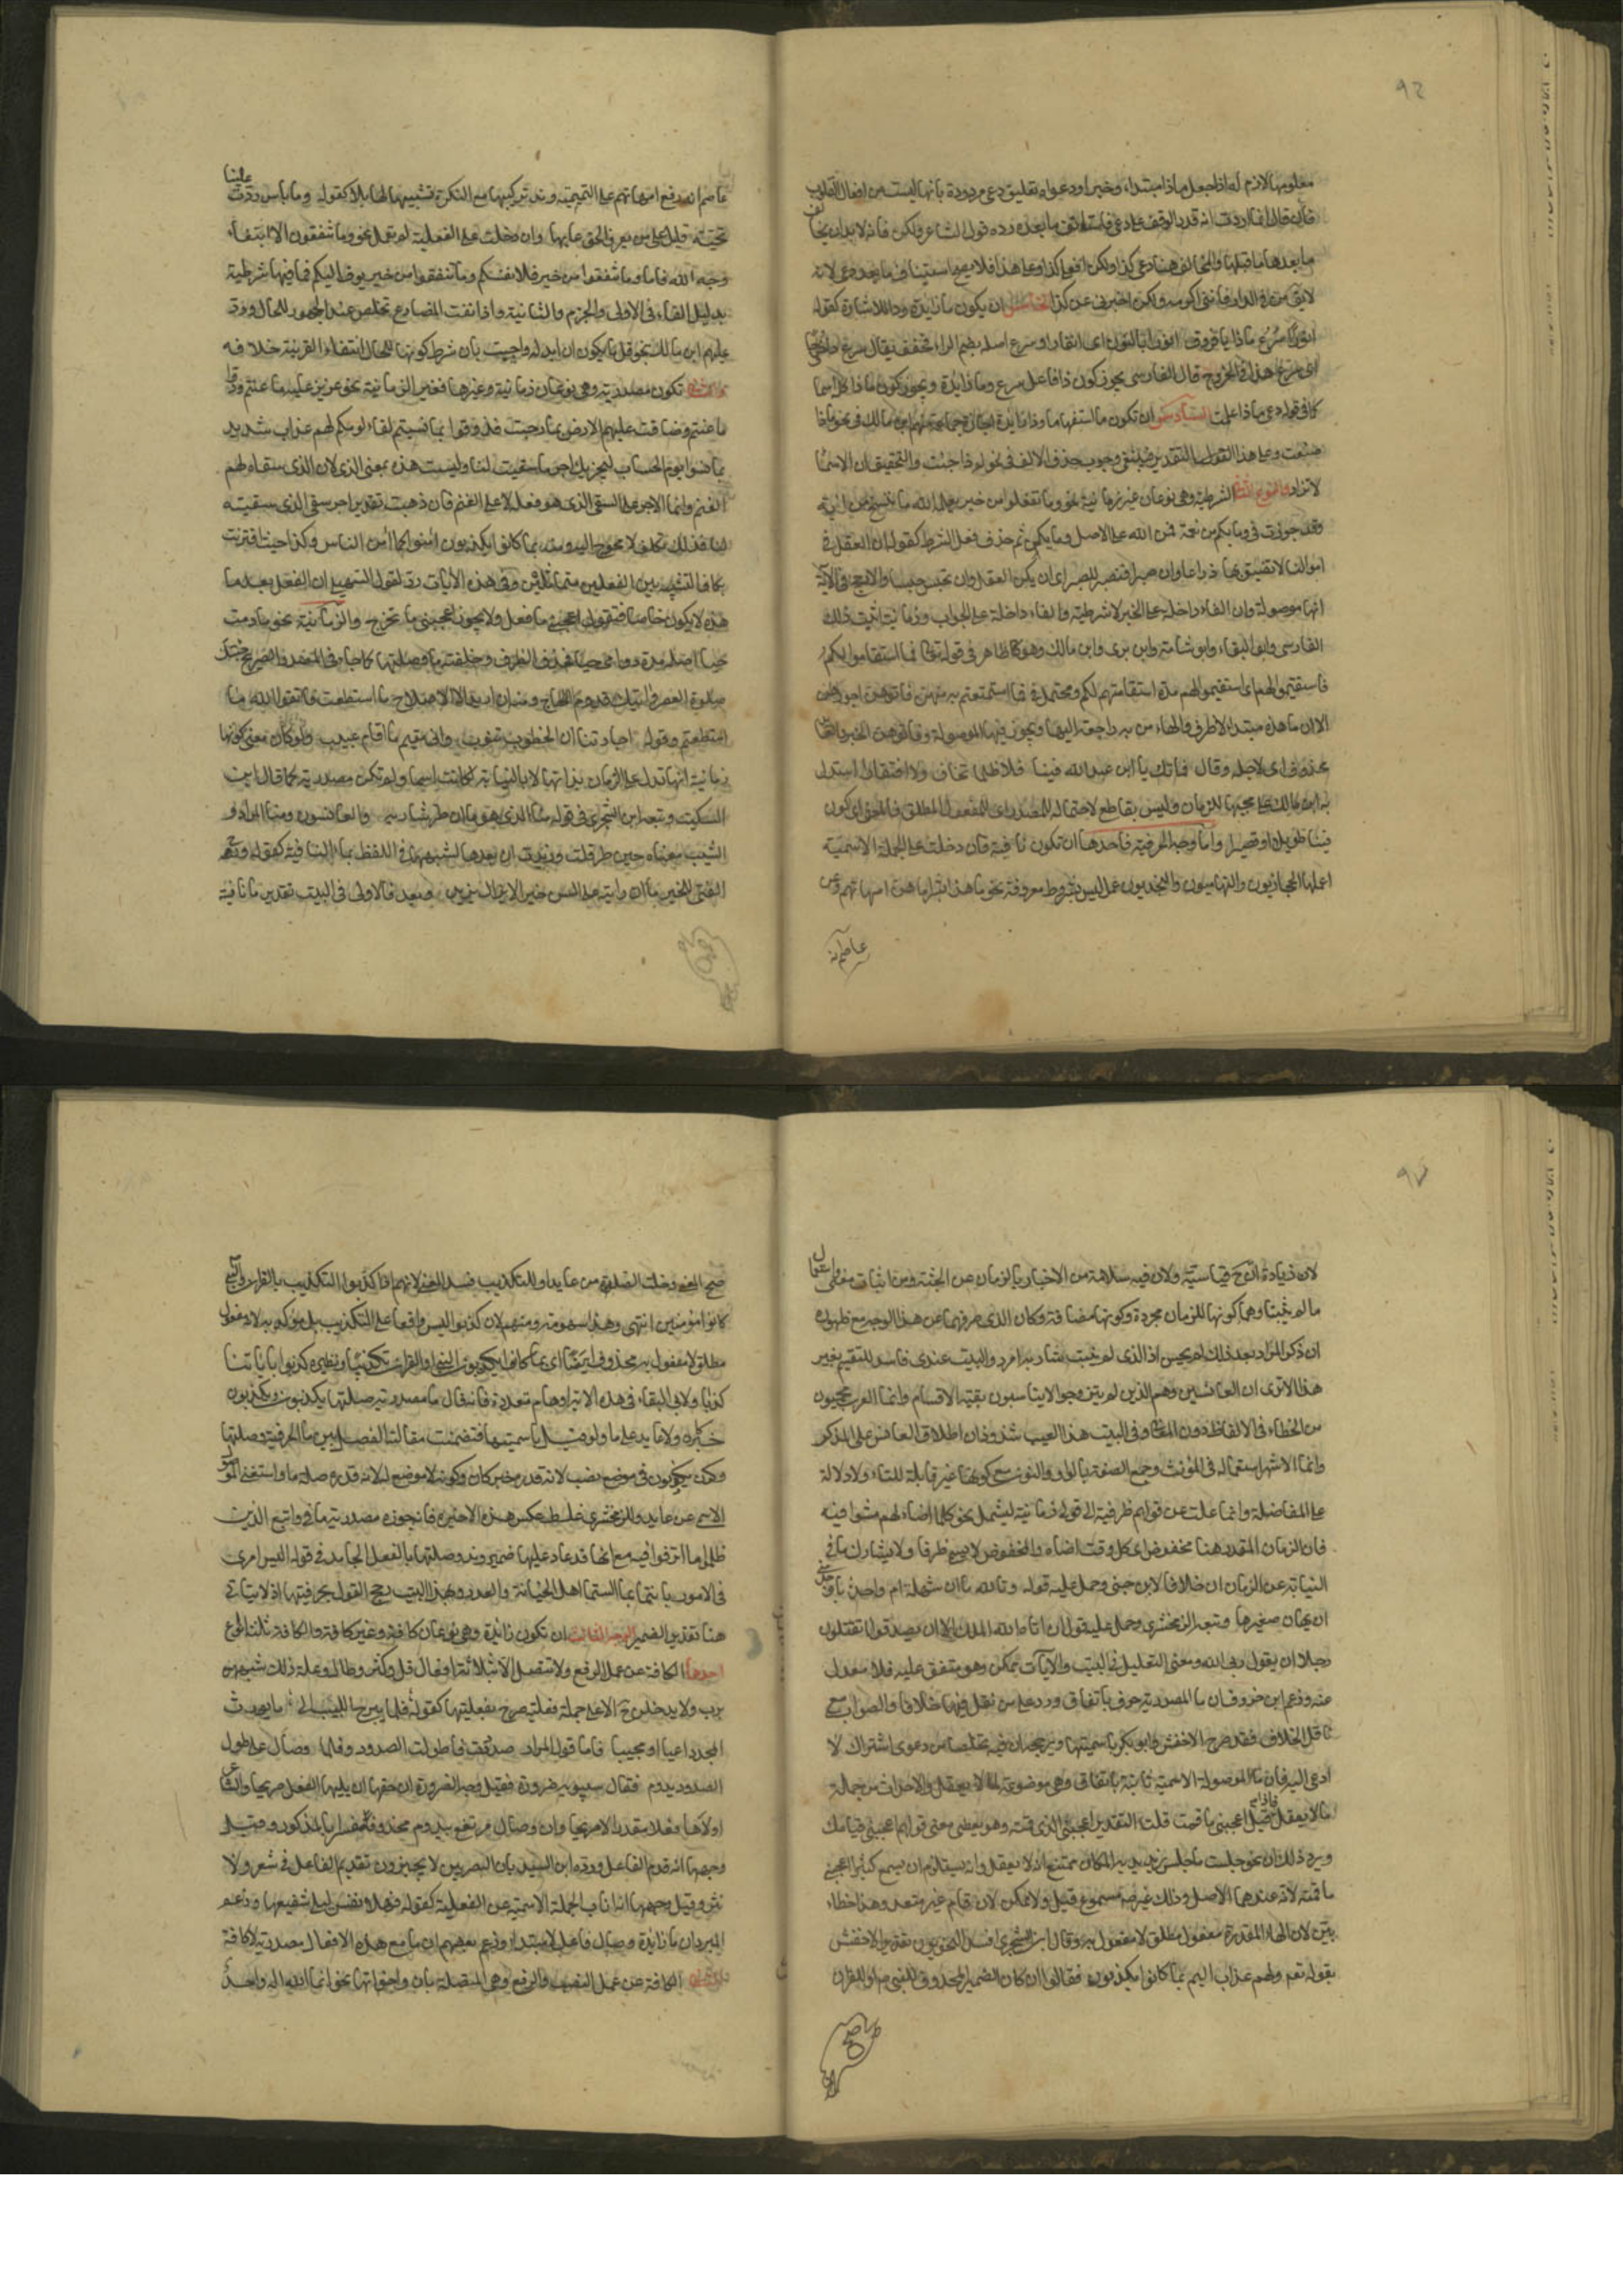 ٩٦
معلومها لازم له اذا جعل ماذا مبتدا وخبرا ودعواه تعليق دعي مردودة بانها ليست من افعال القلوب
فان قال انما اردت انه قدر الوقف على دعي فاستانف ما بعده رده قول الشاعر ولكن فانه لا بد ان يخالف
ما بعدها ما قبلها والمخالف هنا دعي كذا ولكن افعلي كذا وعلى هذا فلا يصح استيناف ما بعد دعي لانه
لا يقال من في الدار فانني اكرمه ولكن اخبرني عن كذا الخامس ان يكون ما زايدة وذا للاشارة كقوله
انورا سرع ماذا يا فروق انورا بالنون اى انفارا وسرع اصله بضم الراء فخفف يقال سرع ذا خروجا
اى سرع هذا في الخروج قال الفارسى يجوز كون ذا فاعل سرع وما زايدة ويجوز كون ماذا كله اسما
كما في قوله دعي ماذا علمت السادس ان تكون ما استفهاما وذا زايدة اجازه جماعة منهم ابن مالك في نحو ماذا
صنعت وعلى هذا التقدير فينبغى وجوب حذف الالف في نحو لم ذا جئت والتحقيق ان الاسماء
لا تزاد والنوع الثالث الشرطية وهى نوعان غير زمانية نحو وما تفعلوا من خير يعلمه الله ما ننسخ من اية
وقد جوزت في وما بكم من نعمة فمن الله على الاصل وما يكن ثم حذف فعل الشرط كقوله ان العقل في
اموالنا لا نضيق بها ذراعا وان صبرا فنصبر للصبر اى ان يكن العقل وان نحبس حبسا والارجح في الآية
انها موصولة وان الفاء داخلة على الخبر لا شرطية والفاء داخلة على الجواب وزمانية اثبت ذلك
الفارسى وابو البقاء وابو شامة وابن برى وابن مالك وهو ظاهر في قوله تعالى فما استقاموا لكم
فاستقيموا لهم اى استقيموا لهم مدة استقامتهم لكم ومحتمل في فما استمتعتم به منهن فاتوهن اجورهن
الا ان ما هذه مبتدا لا ظرف والهاء من به راجعة اليها ويجوز فيها الموصولة وفاتوهن الخبر والعايد
محذوف اى لاجله وقال فما تك يا ابن عبد الله فينا فلا ظلما نخاف ولا افتقارا استدل
به ابن مالك على مجيئها للزمان وليس بقاطع لاحتماله للمصدر اى للمفعول المطلق فالمعنى اى كون
فينا طويلا او قصيرا واما اوجه الحرفية فاحدها ان تكون نافية فان دخلت على الجملة الاسمية
اعملها الحجازيون والتهاميون والنجديون عمل ليس بشروط معروفة نحو ما هذا بشرا ما هن امهاتهم وعن
عاصم انه
عاصم انه رفع امهاتهم على التميمية وندر تركيبها مع النكرة تشبيها لها بلا كقوله وما باس لو ردت علينا
تحية قليل على من يعرف الحق عابها وان دخلت على الفعلية لم تعمل نحو وما تنفقون الا ابتغاء
وجه الله فاما وما تنفقوا من خير فلانفسكم وما تنفقوا من خير يوف اليكم فما فيهما شرطية
بدليل الفاء في الاولى والجزم والثانية واذا نفت المضارع تخلص عند الجمهور للحال ورد
عليهم ابن مالك بنحو قل ما يكون لى ان ابدله واجيب بان شرط كونه للحال انتفاء القرينة خلافه
والثاني تكون مصدرية وهى نوعان زمانية وغيرها فغير الزمانية نحو عزيز عليه ما عنتم ودوا
ما عنتم وضاقت عليهم الارض بما رحبت فذوقوا بما نسيتم لقاء يومكم لهم عذاب شديد
بما نسوا يوم الحساب ليجزيك اجر ما سقيت لنا وليست هذه بمعنى الذى لان الذى سقاه لهم
الغنم وانما الاجر على السقى الذى هو فعله لا على الغنم فان ذهبت تقدر اجر سقى الذى سقيته
لنا فذلك تكلف لا محوج اليه ومنه بما كانوا يكذبون آمنوا كما آمن الناس وكذا حيث اقترنت
بكاف التشبيه بين الفعلين متماثلين وفى هذه الآيات رد لقول السهيلي ان الفعل بعد ما
هذه لا يكون خاصا فتقول اعجبنى ما تفعل ولا يجوز اعجبنى ما تخرج والزمانية نحو ما دمت
حيا اصله مدة دوامى حيا فحذف الظرف وخلفته ما وصلتها كما جاء في المصدر الصريح نحو جئتك
صلوة العصر واتيتك قدوم الحاج ومنه ان اريد الا الاصلاح ما استطعت فاتقوا الله ما
استطعتم وقوله اجارتنا ان الخطوب تنوب وانى مقيم ما اقام عسيب ولو كان معنى كونها
زمانية انها تدل على الزمان بذاتها لا بالنيابة لكانت اسما ولم تكن مصدرية كما قال ابن
السكيت وتبعه ابن الشجرى في قوله منا الذى هو ما ان طر شاربه والعانسون ومنا المرد و
الشيب معناه حين طر قلت وزيدت ان بعدها لشبهها في اللفظ بما النافية كقوله ورج
الفتى للخير ما ان رايته على السن خيرا لا يزال يزيد وبعد فالاولى في البيت تقدير ما نافية
٩٧
لان زيادة ان ح قياسية ولان فيه سلامة من الاخبار بالزمان عن الجثة ومن اثبات معنى واستعمال
ما لم يثبتا وهما كونها للزمان مجردة وكونها مضافة وكان الذى صرفهما عن هذا الوجه مع ظهوره
ان ذكر المرد بعد ذلك لا يحسن اذ الذى لم ينبت شاربه امرد والبيت عندى فاسد التقسيم بغير
هذا الا ترى ان العانسين وهم الذين لم يتزوجوا لا يناسبون بقية الاقسام وانما العرب محميون
من الخطاء في الالفاظ دون المعانى وفى البيت مع هذا العيب شذوذان اطلاق العانس على المذكر
وانما الاشهر استعماله في المؤنث وجمع الصفة بالواو والنون مع كونها غير قابلة للتاء ولا دلالة
على المفاضلة وانما عدلت عن قولهم ظرفية الى قولى زمانية ليشمل نحو كلما اضاء لهم مشوا فيه
فان الزمان المقدر هنا مخفوض اى كل وقت اضاءه والمخفوض لا يسمى ظرفا ولا يشارك ما في
النيابة عن الزمان ان خلافا لابن جنى وحمل عليه قوله وتالله ما ان شهلة ام واحد باوجد منى
ان يهان صغيرها وتبعه الزمخشرى وحمل عليه قوله ان اتاه الله الملك الا ان يصدقوا اتقتلون
رجلا ان يقول ربى الله ومعنى التعليل في البيت والآيات ممكن وهو متفق عليه فلا معدل
عنه وزعم ابن خروف ان ما المصدرية حرف باتفاق ورد على من نقل فيها خلافا والصواب مع
ناقل الخلاف فقد صرح الاخفش وابو بكر باسميتها ويرجحه ان فيه تخلصا من دعوى اشتراك لا
داعى اليه فان ما الموصولة الاسمية ثابتة باتفاق وهى موضوعة لما لا يعقل والاحداث من جملة
ما لا يعقل فاذا قيل اعجبنى ما قمت قلت التقدير اعجبنى الذى قمته وهو يعطى معنى قولهم اعجبنى قيامك
ويرد ذلك ان نحو جلست ما جلس زيد يريد به المكان ممتنع مع انه لا يعقل وانه يستلزم ان يسمع كثيرا اعجبنى
ما قمته لانه عندهما الاصل وذلك غير مسموع قيل ولا ممكن لان قام غير متعد وهذا خطاء
بين لان الهاء المقدرة مفعول مطلق لا مفعول به وقال ابن الشجرى افسد النحويون تقدير الاخفش
بقوله تعم ولهم عذاب اليم بما كانوا يكذبون فقالوا ان كان الضمير المحذوف للنبى م او للقران
صح
صح المعنى وخلت الصلة من عايد او للتكذيب فسد المعنى لانهم اذا كذبوا التكذيب بالقران او النبى
كانوا مؤمنين انتهى وهذا سهو منه ومنهم لان كذبوا ليس واقعا على التكذيب بل مؤكد به لانه مفعول
مطلق لا مفعول به والمفعول به محذوف ايضا اى بما كانوا يكذبون النبى او القران تكذيبا ونظيره كذبوا باياتنا
كذابا ولابى البقاء في هذه الاية اوهام متعددة فانه قال ما مصدرية صلتها يكذبون ويكذبون
خبر كان ولا عايد على ما ولو قيل باسميتها فتضمنت مقالته الفصل بين ما الحرفية وصلتها
وكون يكذبون في موضع نصب لانه قدره خبر كان وكونه لا موضع له لانه قدره صلة ما واستغنى الموصول
الاسمى عن عايد وللزمخشرى غلطة عكس هذه الاخيرة فانه جوز مصدرية ما في واتبع الذين
ظلموا ما اترفوا فيه مع انه قد عاد عليها ضمير وندر وصلتها بالفعل الجامد في قوله اليس اميرى
في الامور بانتما بما لستما اهل الخيانة والغدر وبهذا البيت رجح القول بحرفيتها اذ لا يتاتى
هنا تقدير الضمير الوجه الثالث ان تكون زائدة وهى نوعان كافة وغير كافة والكافة ثلثة انواع
احدها الكافة عن عمل الرفع ولا تتصل الا بثلاثة افعال قل وكثر وطال وعلة ذلك شبههن
برب ولا يدخلن ح الا على جملة فعلية صرح بفعليتها كقوله قلما يبرح اللبيب الى ما يورث
المجد داعيا او مجيبا فاما قول المراد صددت فاطولت الصدود وقلما وصال على طول
الصدود يدوم فقال سيبويه ضرورة فقيل وجه الضرورة ان حقها ان يليها الفعل صريحا والشاعر
اولاها فعلا مقدرا لا صريحا وان وصال مرتفع بيدوم محذوفا مفسرا بالمذكور وقيل
وجهها انه قدم الفاعل ورده ابن السيد بان البصريين لا يجيزون تقديم الفاعل في شعر ولا
نثر وقيل وجهها انه اناب الجملة الاسمية عن الفعلية كقوله فهلا نفس ليلى شفيعها وزعم
المبرد ان ما زائدة وصال فاعل لا مبتدا وزعم بعضهم ان ما مع هذه الافعال مصدرية لا كافة
والثانى الكافة عن عمل النصب والرفع وهى المتصلة بان واخواتها نحو انما الله اله واحد